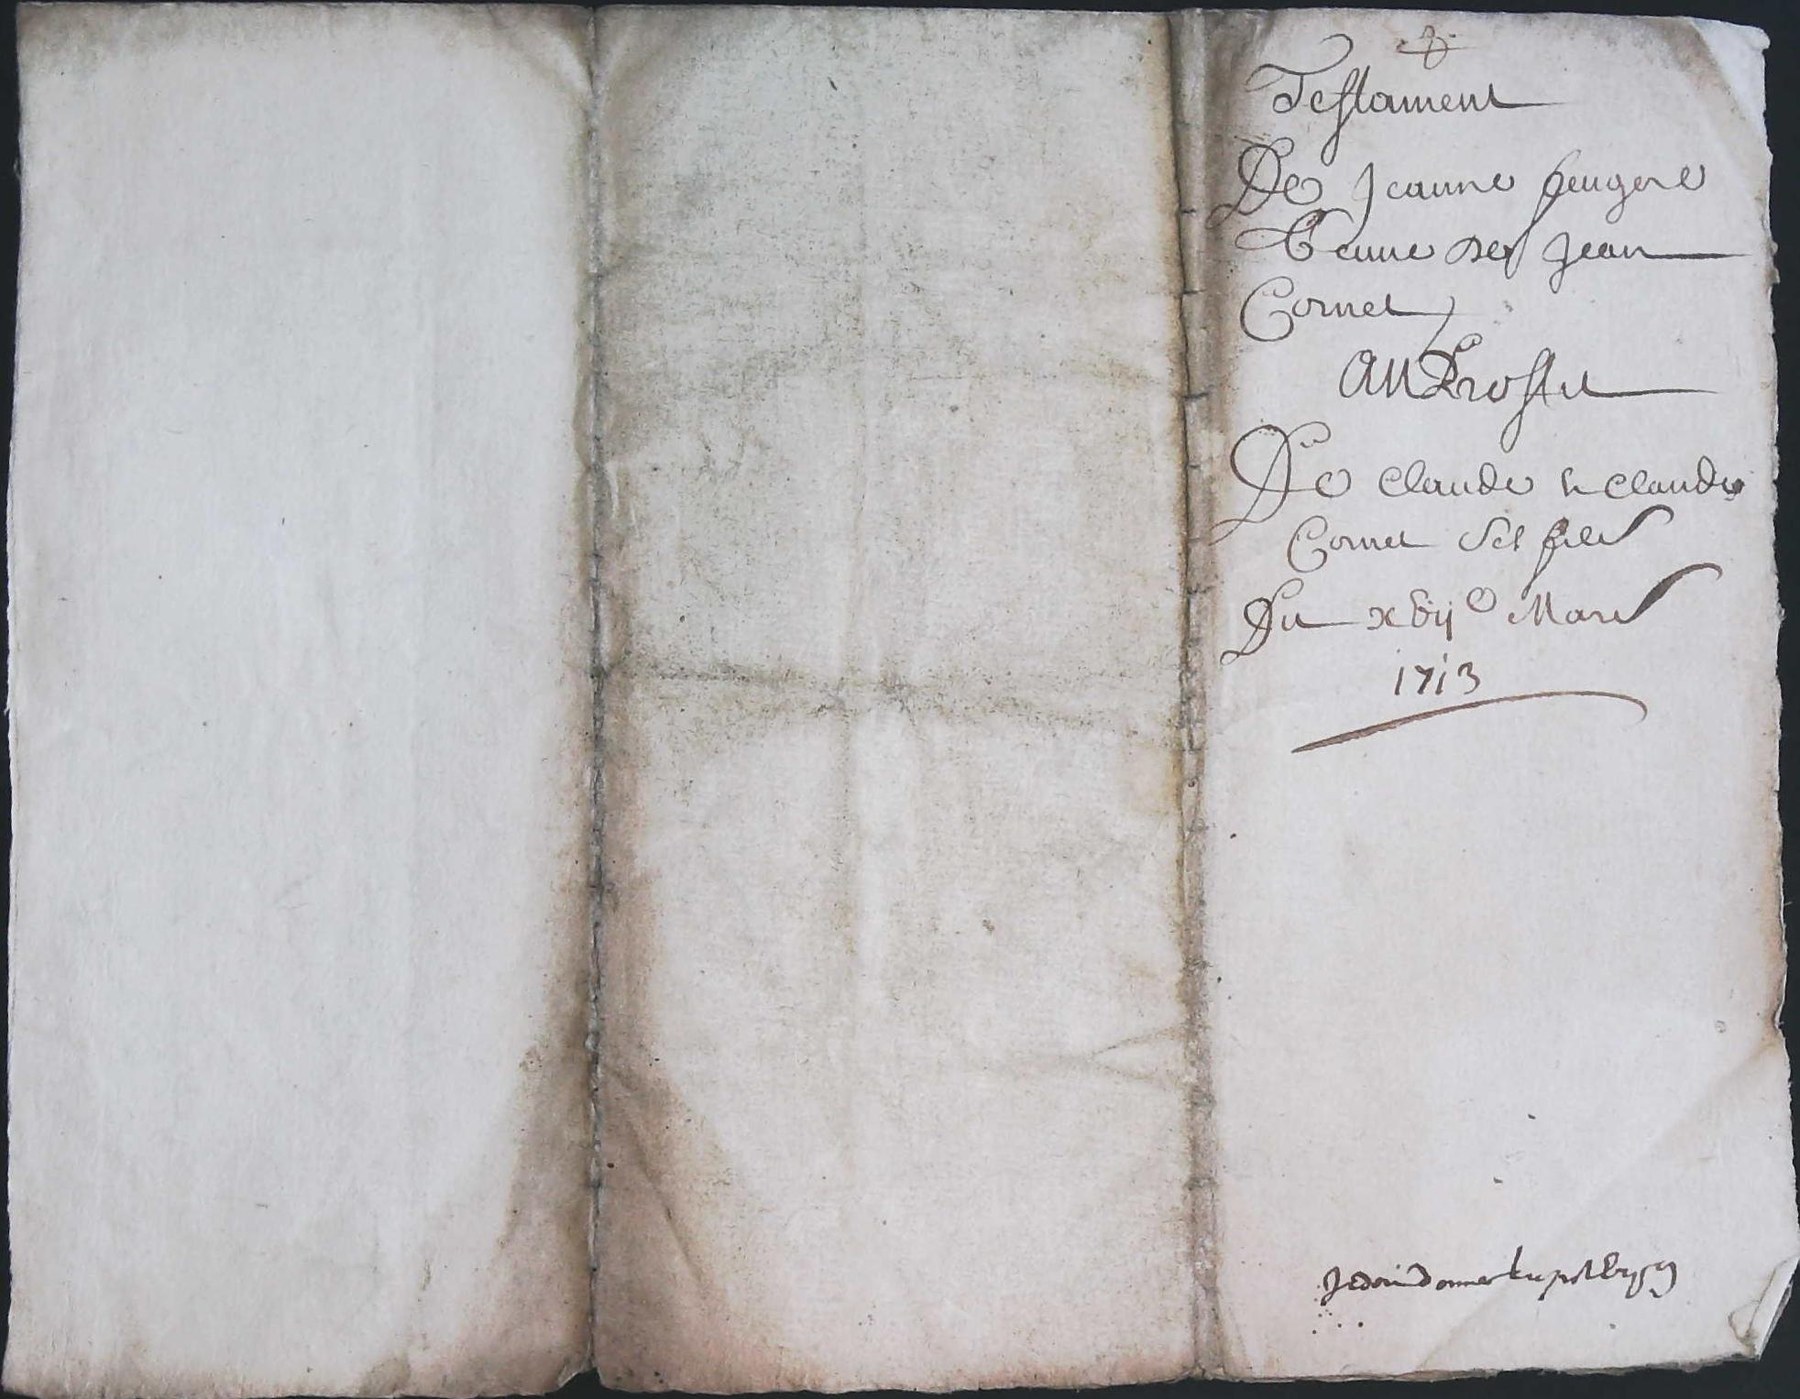 Testament
De Jeanne feugere
Veuve de Jean
Cornet
Au Proffit
De Claude & Claude
Cornet ses fils
Du xviie Mars
1713
Je doit donner